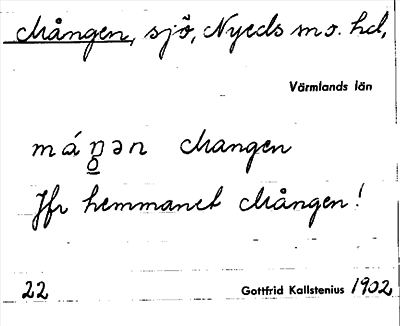 Mången, sjö, Nyeds m.o. hd,
Värmlands län
máŋ̱ən Mangen
Jfr hemmanet Mången!
22 Gottfrid Kallstenius 1902